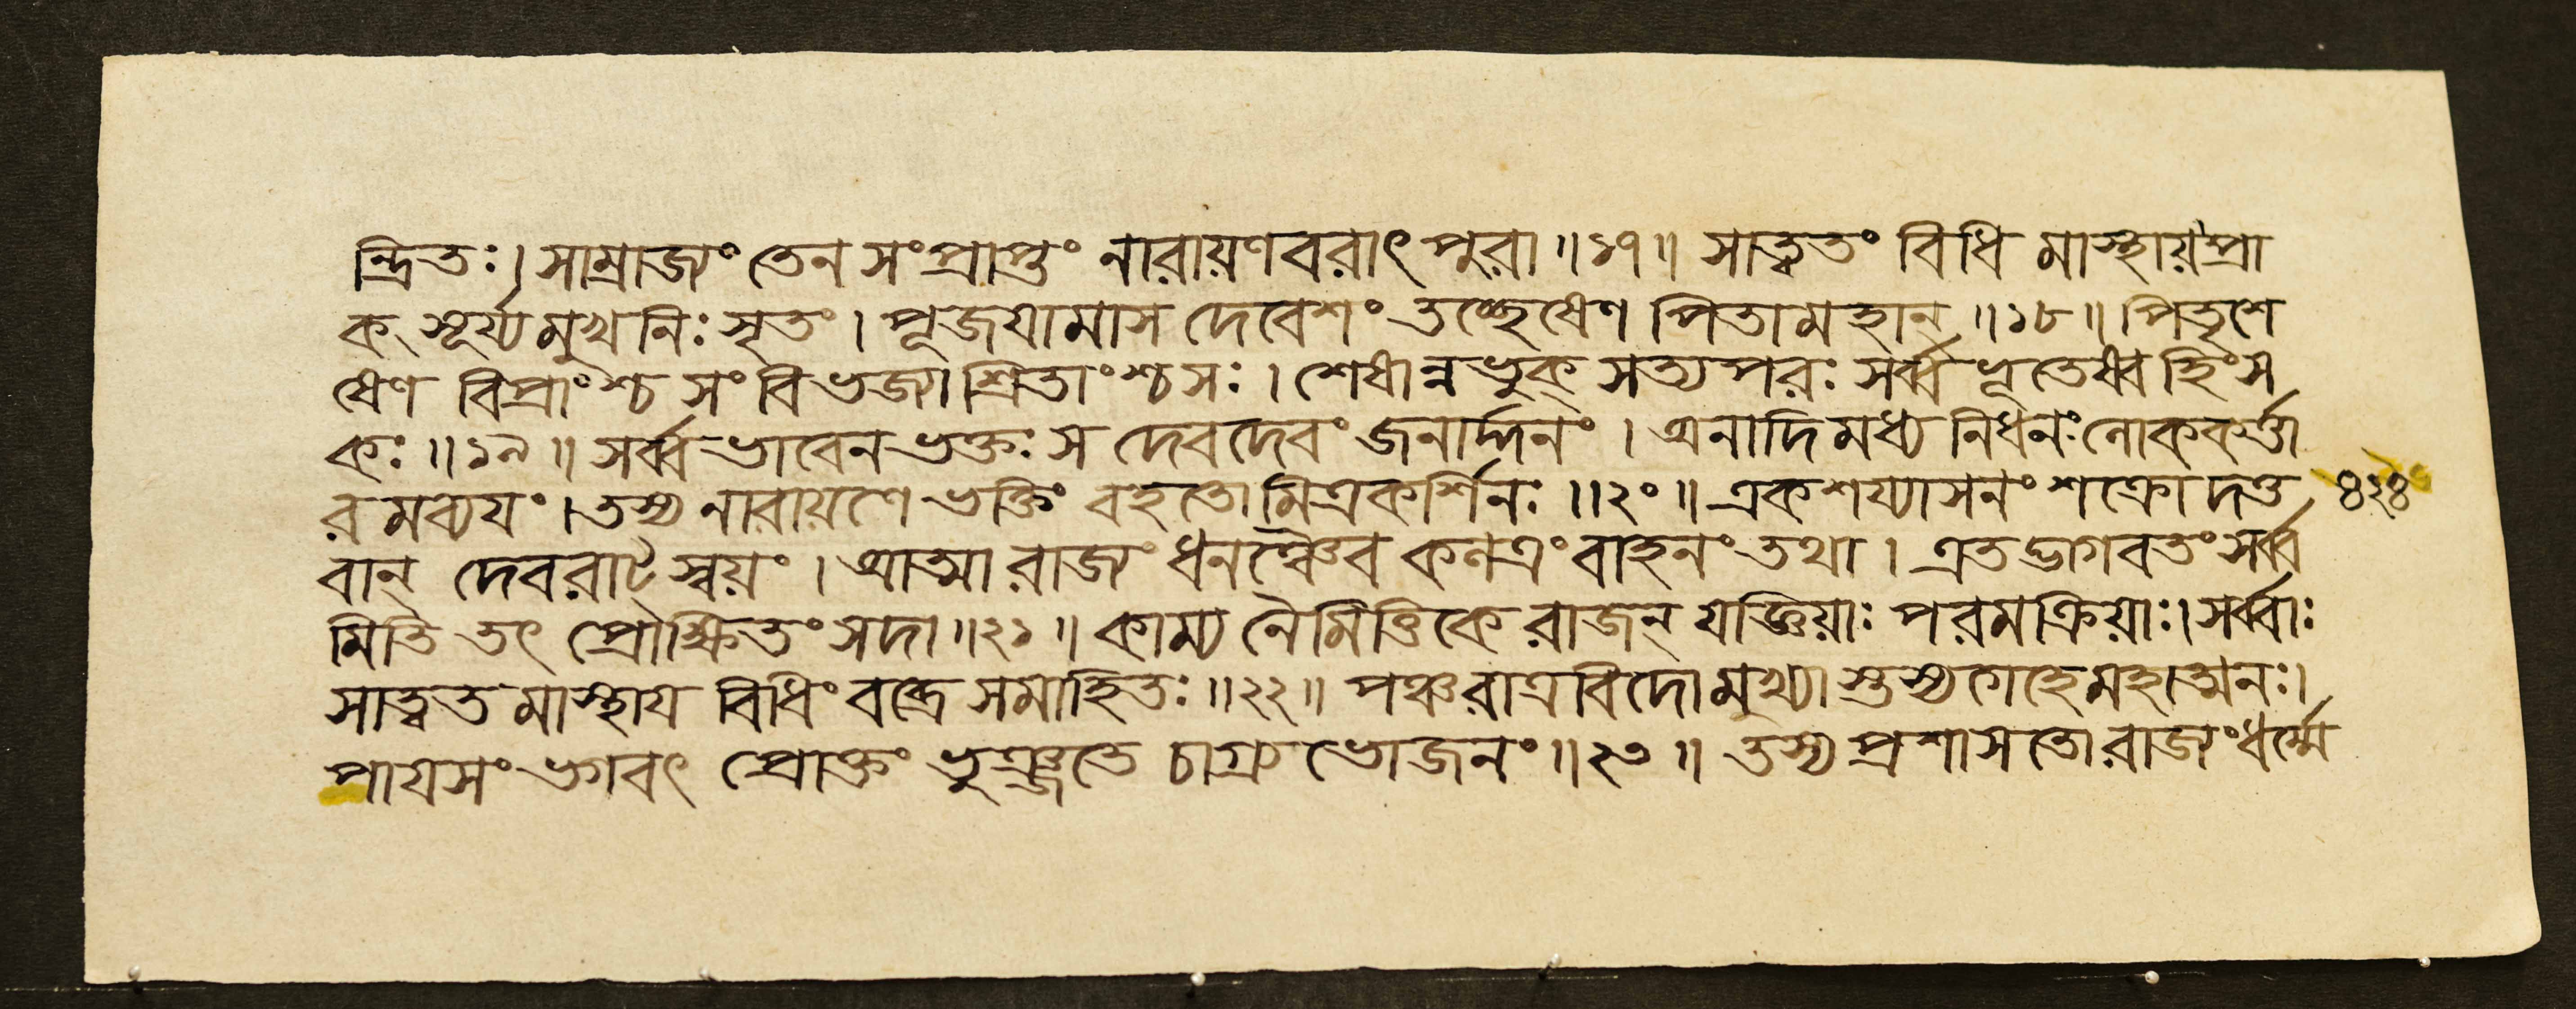 ন্দ্রিতঃ। সাম্রাজ্যং তেন সংপ্রাপ্তং নারায়ণবরাৎ পুরা॥১৭॥ সাত্ত্বতং বিধি মাস্থায় প্রা
ক্ সূর্য্যমুখনিঃসৃতং। পূজযামাস দেবেশং তচ্ছেষেণ পিতামহান্॥১৮॥ পিতৃশে
ষেণ বিপ্রাংশ্চ সংবিভজ্যাশ্রিতাংশ্চ সঃ। শেষান্নভুক্ সত্যপরঃ সর্ব্বভূতেষ্বহিংস
কঃ॥১৯॥ সর্ব্বভাবেন ভক্তঃ স দেবদেবং জনার্দ্দনং। অনাদিমধ্যনিধনং লোককর্ত্তা
র মব্যযং। তস্য নারায়ণে ভক্তিং বহতোমিত্রকর্শিনঃ॥২০॥ একশয্যাসনং শক্রো দত্ত
৪২৪
বান্ দেবরাট্ স্বয়ং। আত্মা রাজ্যং ধনঞ্চৈব কলত্রং বাহনং তথা। এতদ্ভাগবতং সর্ব্ব
মিতি তৎ প্রোক্ষিতং সদা॥২১॥ কাম্য নৈমিত্তিকে রাজন্ যজ্ঞিয়াঃ পরমক্রিয়াঃ। সর্ব্বাঃ
সাত্ত্বত মাস্থায বিধিং চক্রে সমাহিতঃ॥২২॥ পঞ্চরাত্রবিদো মুখ্যাস্তস্য গেহে মহাত্মনঃ।
পাযসং ভগবৎ প্রোক্তং ভুঞ্জতে চাগ্র ভোজনং॥২৩॥ তস্য প্রশাসতো রাজ্যং ধর্ম্মে